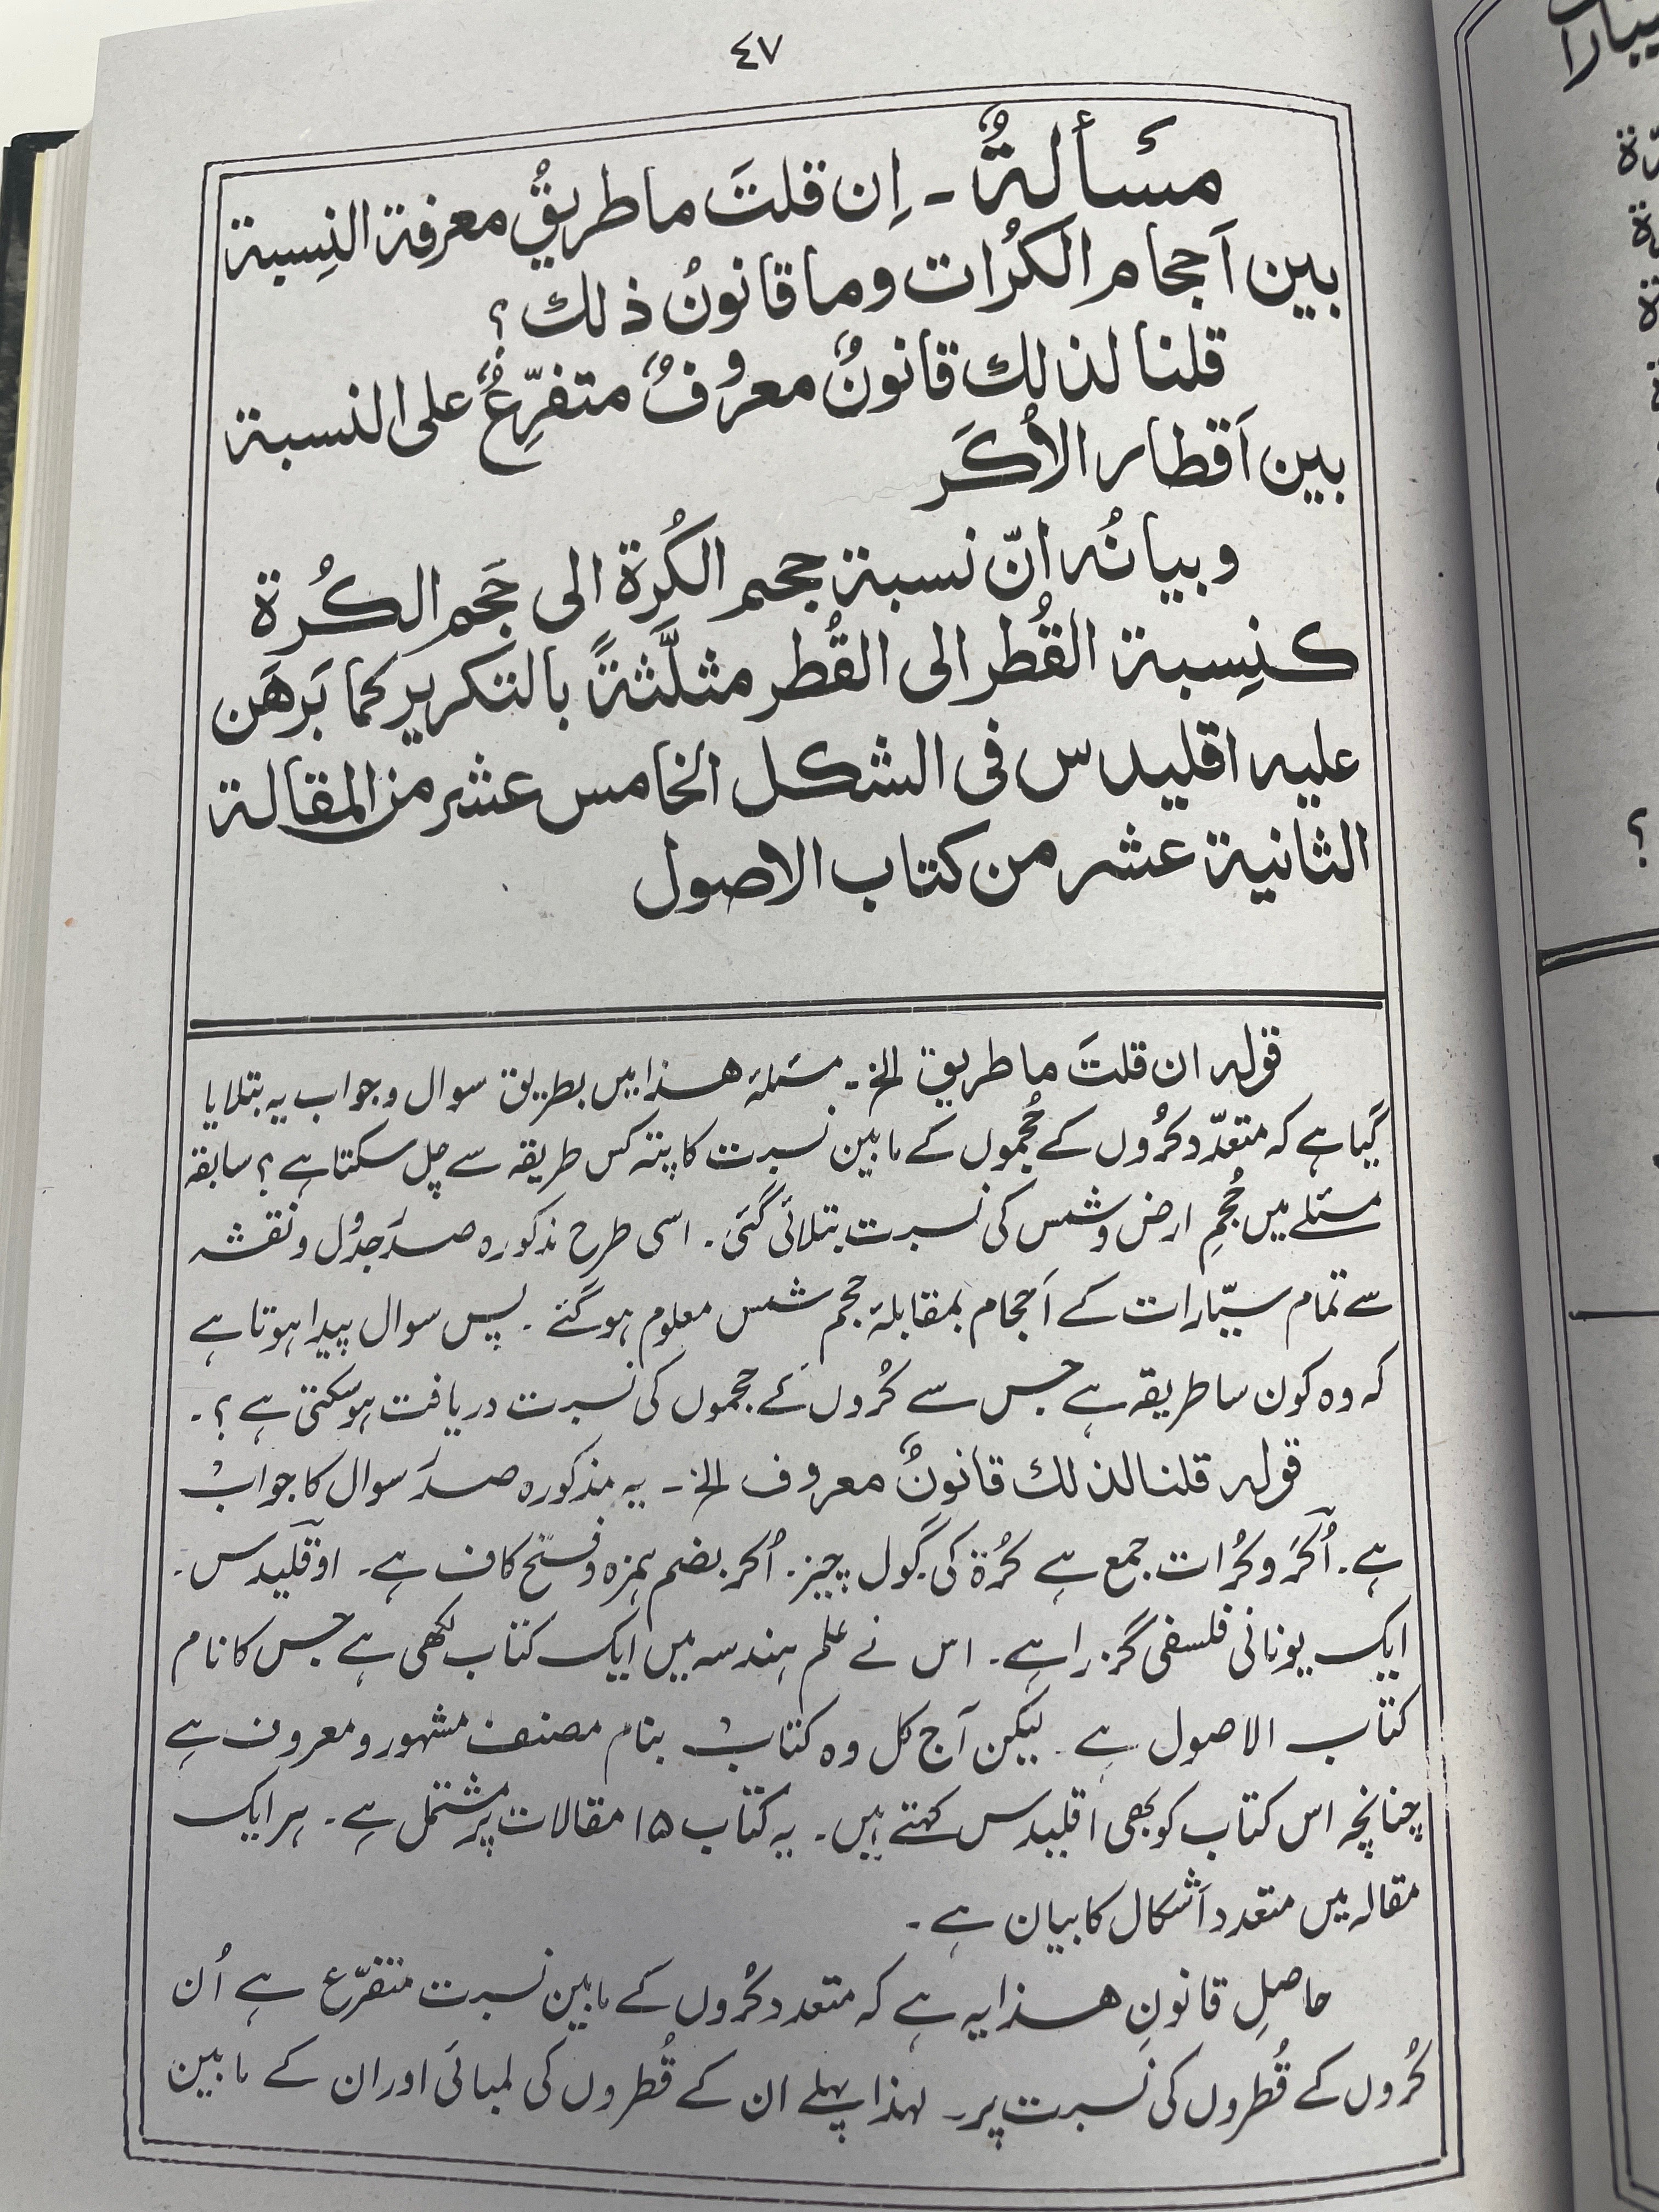 ٤٧
مسألةٌ ـ اِن قلتَ ما طريقُ معرفة النِسبة
بين اَحجام الكُرات وما قانونُ ذلك؟
قلنا لذلك قانونٌ معروفٌ متفرِّعٌ على النسبة
بين اَقطار الاُكَر
وبيانُه انّ نسبة حجم الكُرة الى حَجم الكُرة
كنِسبة القُطر الى القُطر مثلَّثةً بالتكرير كما بَرهَن
عليه اقليدس فى الشكل الخامس عشر من المقالة
الثانية عشر من كتاب الاصول
قوله ان قلتَ ما طريق الخ ـ مسئلہ ھذا میں بطریق سوال وجواب یہ بتلایا
گیا ہے کہ متعدّد کُروں کے حُجموں کے مابین نسبت کا پتہ کس طریقہ سے چل سکتا ہے؟ سابقہ
مسئلے میں حُجمِ ارض وشمس کی نسبت بتلائی گئی ۔ اسی طرح مذکورہ صدَر جدوَل ونقشہ
سے تمام سیّارات کے اَحجام بمقابلۂ حجم شمس معلوم ہوگئے ۔ پس سوال پیدا ہوتا ہے
کہ وہ کون سا طریقہ ہے جس سے کُروں کے حجموں کی نسبت دریافت ہوسکتی ہے؟۔
قوله قلنا لذلك قانونٌ معروف الخ ـ یہ مذکورہ صدَر سوال کا جواب
ہے ۔ اُکَر وکُرات جمع ہے کُرة کی گول چیز ۔ اُکر بضم ہمزہ وفتح کاف ہے ۔ اوقلیدس ۔
ایک یونانی فلسفی گزرا ہے ۔ اس نے علم ہندسہ میں ایک کتاب لکھی ہے جس کا نام
کتاب الاصول ہے ۔ لیکن آج کل وہ کتاب بنام مصنف مشہور ومعروف ہے
چنانچہ اس کتاب کو بھی اقلیدس کہتے ہیں ۔ یہ کتاب ۱۵ مقالات پر مشتمل ہے ۔ ہر ایک
مقالہ میں متعدد اَشکال کا بیان ہے ۔
حاصلِ قانونِ ھذا یہ ہے کہ متعدد کُروں کے مابین نسبت متفرّع ہے اُن
کُروں کے قُطروں کی نسبت پر ۔ لہذا پہلے ان کے قُطروں کی لمبائی اور ان کے مابین